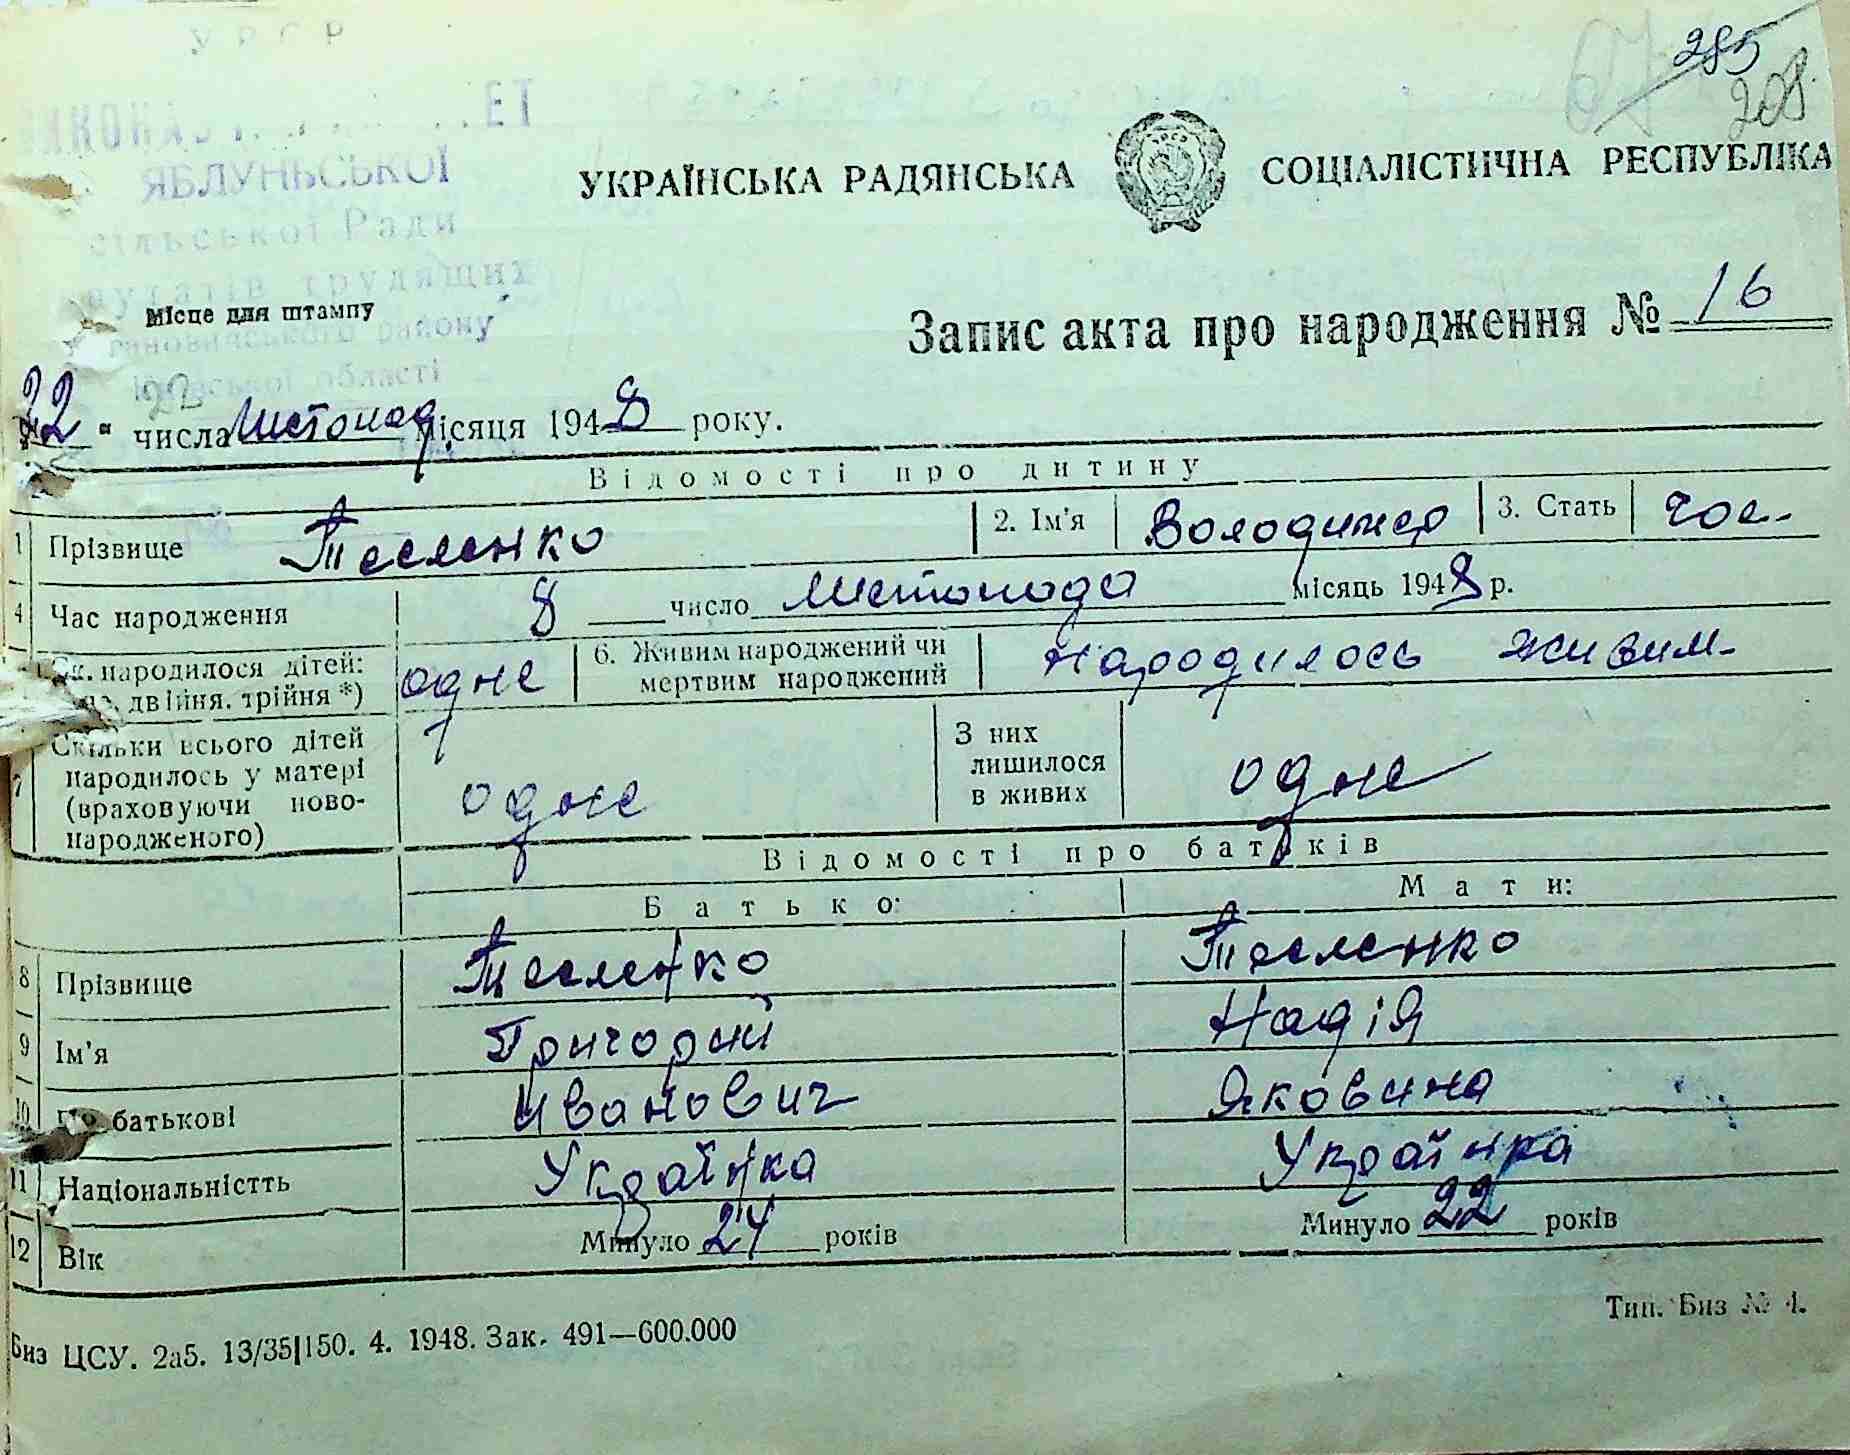 УРСР
ЯБЛУНЬСЬКОЇ
сільської Ради
трудящих
району
області
285
208
УКРАЇНСЬКА РАДЯНСЬКА СОЦІАЛІСТИЧНА РЕСПУБЛІКА
Місце для штампу
Запис акта про народження № 16
22
22 " числа Листопад місяця 1948 року.
Відомості про дитину
1 Прізвище Тесленко 2. Ім'я Володимер 3. Стать чос.
4 Час народження 8 число Листопада місяць 1948 р.
Ск. народилося дітей: двійня, трійня *) одне 6. Живим народжений чи мертвим народжений народилось живим.
7 Скільки всього дітей народилось у матері (враховуючи новонародженого) одне З них лишилося в живих одне
Відомості про батьків
Батько: Мати:
8 Прізвище Тесленко Тесленко
9 Ім'я Григорий Надія
10 По батькові Иванович Яковина
11 Національністть Українка Українка
12 Вік Минуло 24 років Минуло 22 років
Биз ЦСУ. 2а5. 13/35|150. 4. 1948. Зак. 491—600.000
Тип. Биз № 4.